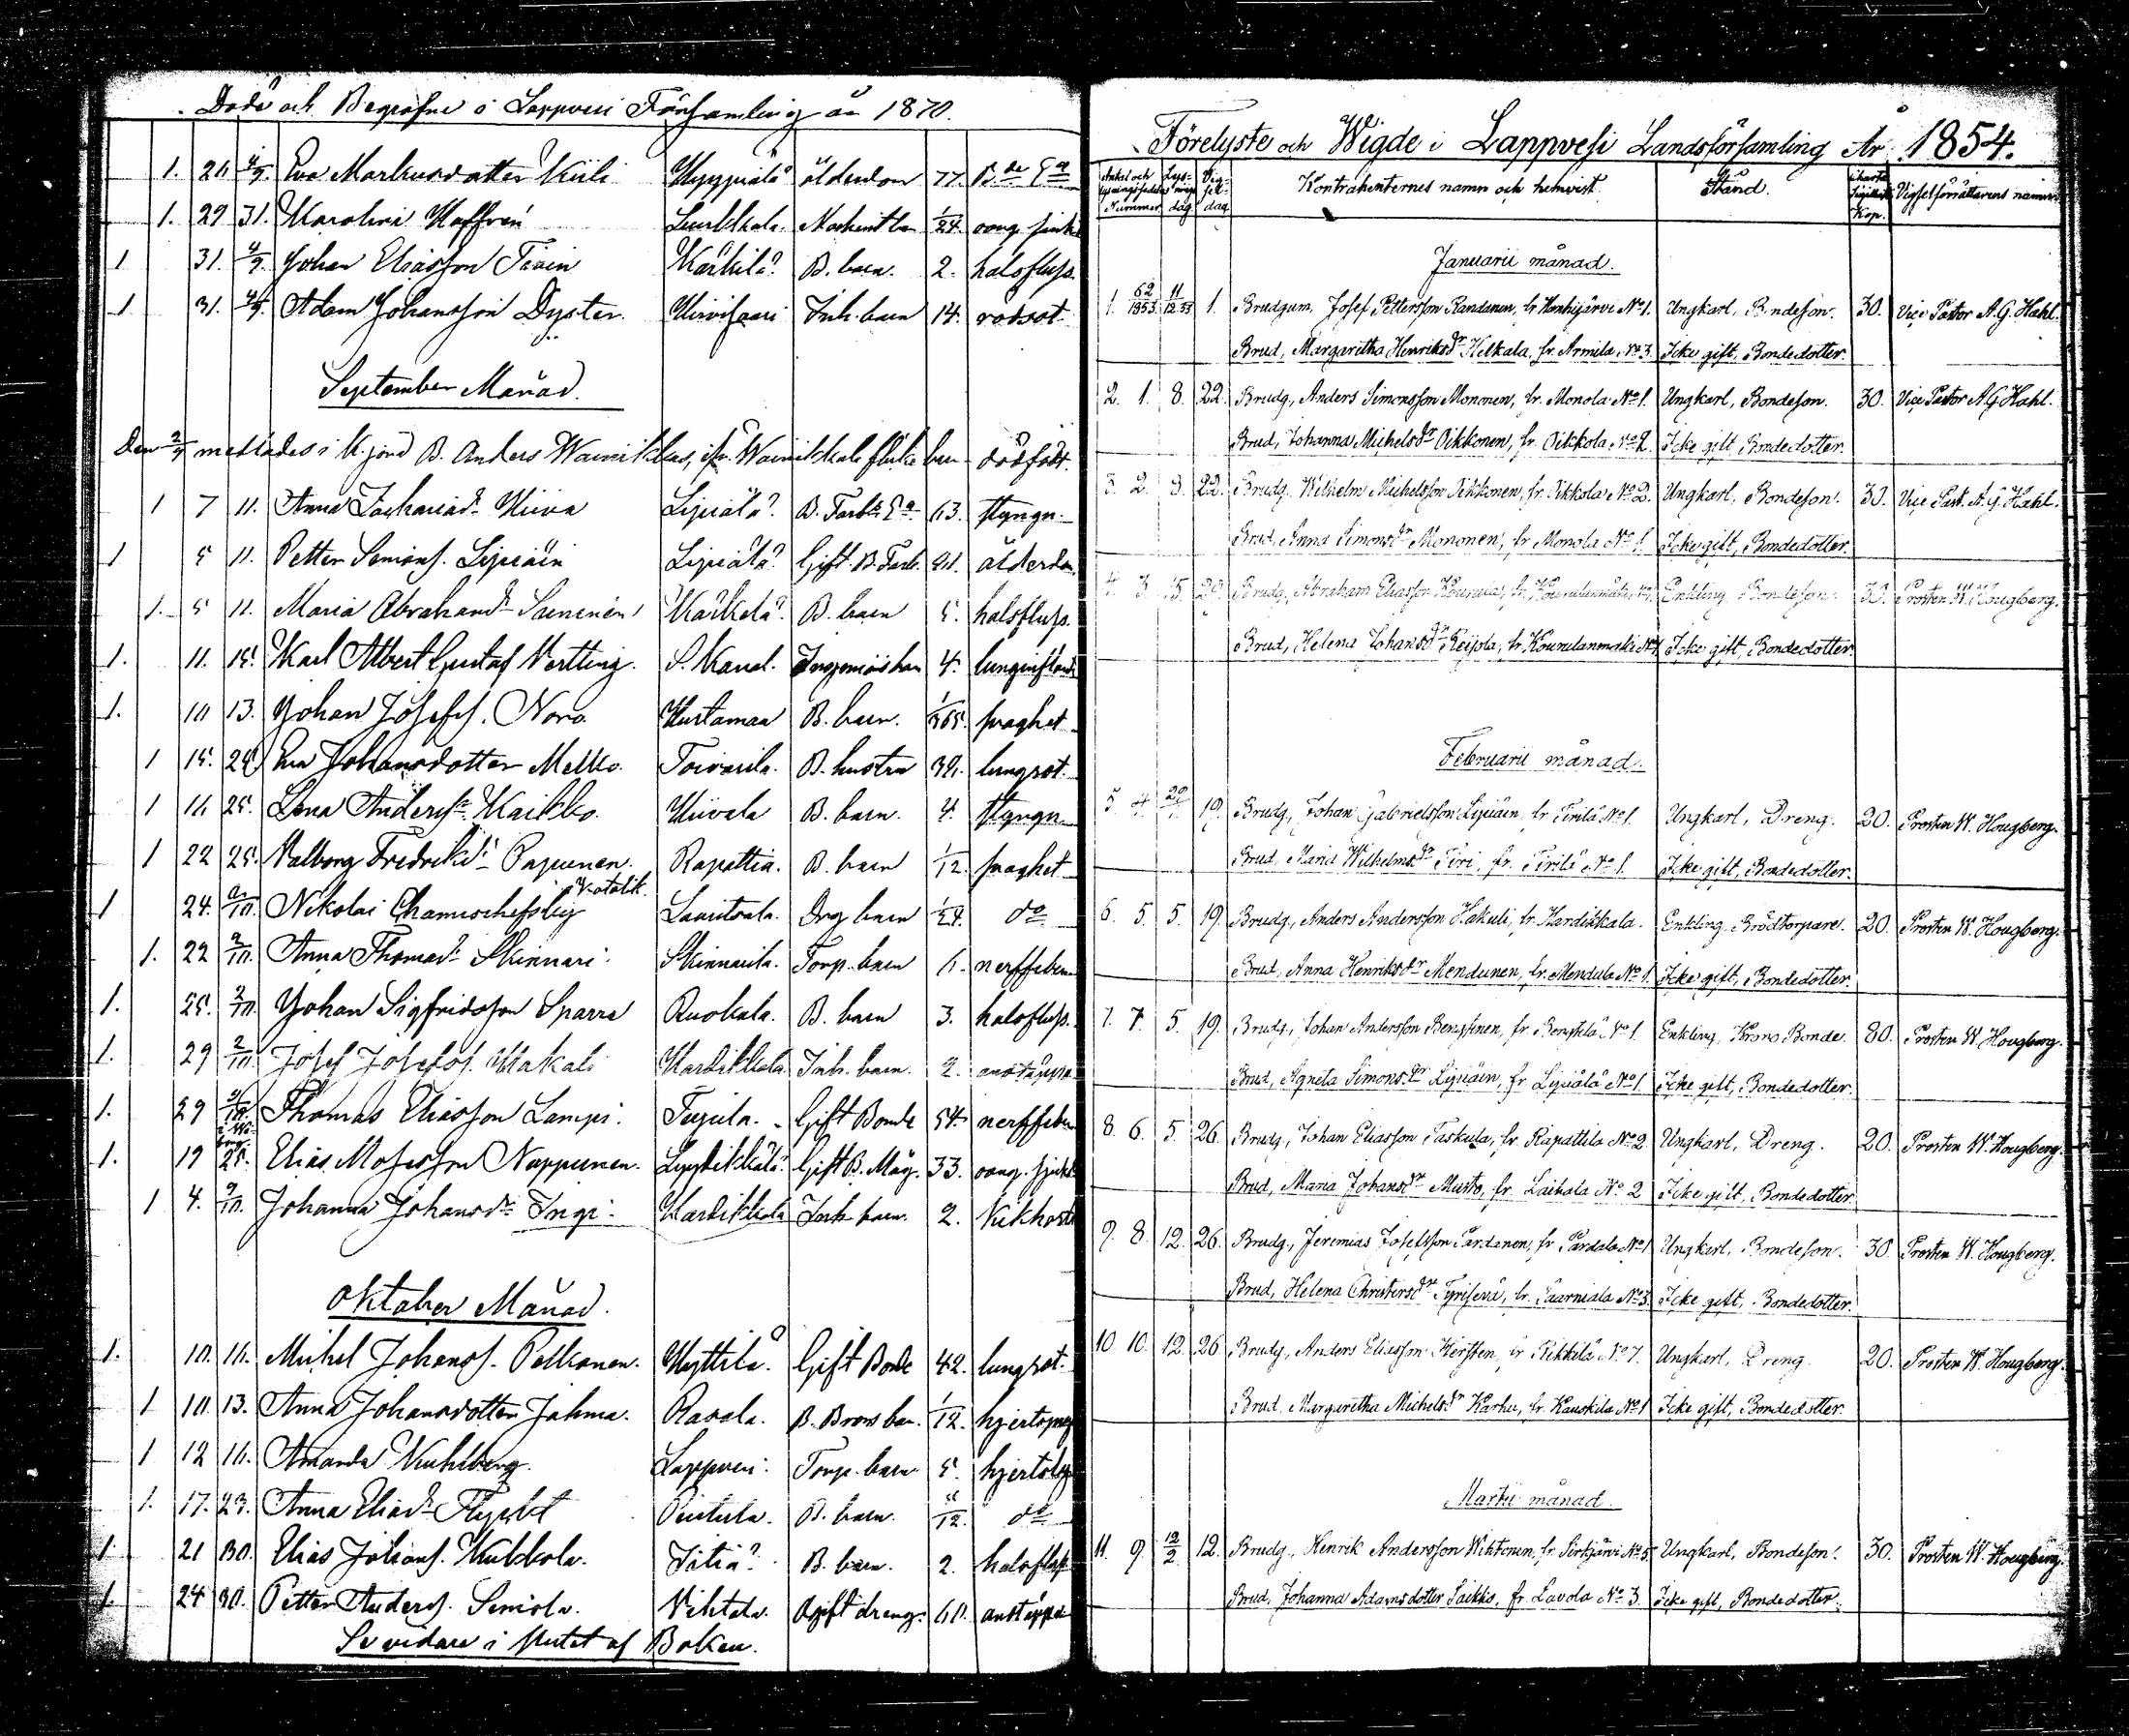 Döde och Begrafne i Lappvesi Församling år 1870.
1. 26 4/9. Eva Markusdotter Kiili Hyppiälä ålderdom 77. B.de E.a
1. 29 31. Karolina Kaffrén 1/24. oang. sjukd
1 31. 4/9. Johan Eliasson Tiain Kärkilä B. barn. 2. halsfluss.
1 31. 4/9. Adam Johansson Dyster Hirvisaari Inh. barn 14. rödsot
September Månad.
Den 2/9 i K. jord B. Anders Wainikkas, ifr. Wainikkala barn dödfödt.
1 7 11. Anna Zachariad:r Hiiva Lipiälä B. Enka 63. styngn.
1 5 11. Petter Simons. Lipiäin Lipiälä Gift B. ålderdom.
1. 5 11. Maria Abrahamd:r Saininen Kärkelä B. barn 5. halsfluss.
1. 11. 15. Karl Albert Gustaf Vertting. S. Kanal. 4. lunginflam
1. 10 13. Johan Josefs. Noro Hurtamaa B. barn. 1/365. svaghet
1 15. 25 Eva Johansdotter Melko. Toivarila. B. hustru 39. lungsot.
1 16 25. Lena Andersd:r Kaikko. Hiivala B. barn. 4. styngn
1 22 25. Valborg Fredriksd:r Papunen. Rapattia. B. barn 1/12. svaghet
Katolik.
1 24. 2/10. Nikolai Chamischefsky Lauritsala. Drg barn 1/24. d:o
1. 22 2/10. Anna Thomasd:r Skinnari. Skinnarila. Torp. barn 6. nerffeber
1. 25. 2/10. Johan Sigfridsson Sparra Ruokala. B. barn 3. halsfluss.
1. 29 2/10. Josef Josefss. Hakali Hardikkala Inh. barn. 2.
1. 29 Thomas Eliasson Lampi. Tujula. Gift Bonde 54. nerffeber
1. 19 25. Elias Mosesson Nappunen. Gift B. Måg. 33. oang. sjukd
1 4. 9/10. Johanna Johansd:r Ingi. Hardikkala Inh. barn. 2. Kikhosta
Oktober Månad.
1. 10. 16. Mikel Johans. Pelkonen. Hyttilä. Gift Bonde 42. lungsot.
1 10 13. Anna Johansdotter Jahma. Rasala. 1/12.
1 12 16. Amanda Kuhlberg. Lappvesi. Torp. barn 5.
1. 17. 23. Anna Eliasd:r Flyckt B. barn. /12. d:o
1. 21 30. Elias Johans. Kukkola. Iitiä B. barn. 2. halsfluss
1. 24 30. Petter Anders. Simola. Vihtola. Ogift dreng. 60. andtäppa
Se vidare i slutet af Boken.
Förelyste och Wigde i Lappvesi Landsförsamling År 1854.
Antal och lysningssedelns Nummer Lysnings dag Vigsel dag Kontrahenternes namn och hemvist. Stånd. Charta Sigillata Kop. Vigselförrättarens namn
Januarii månad.
1. 62/1853 11/12.53 1. Brudgum, Josef Pettersson Randanen, fr. Hanhijärvi No 1. Ungkarl, Bondeson. 30. Vice Pastor A.G. Hahl.
Brud, Margaretha Henriksd:r Helkala, fr. Armila No 3. Icke gift, Bondedotter.
2. 1. 8. 22. Brudg., Anders Simonsson Mononen, fr. Monola No 1. Ungkarl, Bondeson. 30. Vice Pastor A.G. Hahl.
Brud, Johanna Michelsd:r Oikkonen, fr. Oikkola No 2. Icke gift Bondedotter.
3. 2. 8. 22. Brudg. Wilhelm Michelsson Oikkonen, fr. Oikkola No 2. Ungkarl, Bondeson. 30. Vice Past. A.G. Hahl.
Brud, Anna Simonsd:r Mononen, fr. Monola No 1. Icke gift, Bondedotter.
4. 3. 15. 29. Brudg., Abraham Eliasson Kourula, Enkling Bondeson. 30. Prosten W. Hougberg.
Brud, Helena Johansd:r Reijola, Icke gift, Bondedotter.
Februarii månad.
5 4 29/1 19. Brudg., Johan Gabrielsson Lipiäin, fr. Tirilä No 1. Ungkarl, Dreng. 20. Prosten W. Hougberg.
Brud, Maria Wilhelmsd:r Tiri, fr. Tirilä No 1. Icke gift, Bondedotter.
6. 5 5 19. Brudg., Anders Andersson Hakuli, fr. Hardikkala. Enkling, Brödtorpare. 20. Prosten W. Hougberg.
Brud, Anna Henriksd:r Mendunen, fr. Mendula No 1. Icke gift, Bondedotter.
7. 7. 5. 19. Brudg., Johan Andersson Bengtinen, No 1. Enkling, Krono Bonde. 80. Prosten W. Hougberg.
Brud, Agneta Simonsd:r Lipiäin, fr. Lipiälä No 1. Icke gift, Bondedotter.
8. 6. 5. 26. Brudg., Johan Eliasson Taskula, fr. Rapattila No 2. Ungkarl, Dreng. 20. Prosten W. Hougberg.
Brud, Maria Johansd:r Musto, fr. Laihala No 2 Icke gift, Bondedotter.
9. 8. 12. 26. Brudg., Jeremias Josefsson Pardanen, fr. Pardala No 1 Ungkarl, Bondeson. 30. Prosten W. Hougberg.
Brud, Helena Christersd:r Tyrisevä, fr. Saarniala No 3. Icke gift, Bondedotter.
10 10. 12. 26 Brudg., Anders Eliasson fr. Rikkilä No 7. Ungkarl, Dreng. 20. Prosten W. Hougberg.
Brud, Margaretha Michelsd:r Karhu, fr. Kauskila No 1 Icke gift, Bondedotter.
Martii månad.
11. 9. 12/2 12. Brudg., Henrik Andersson Wihtonen, No 5 Ungkarl, Bondeson. 30. Prosten W. Hougberg.
Brud, Johanna Adamsdotter Saikko, fr. Lavola No 3. Icke gift, Bondedotter.